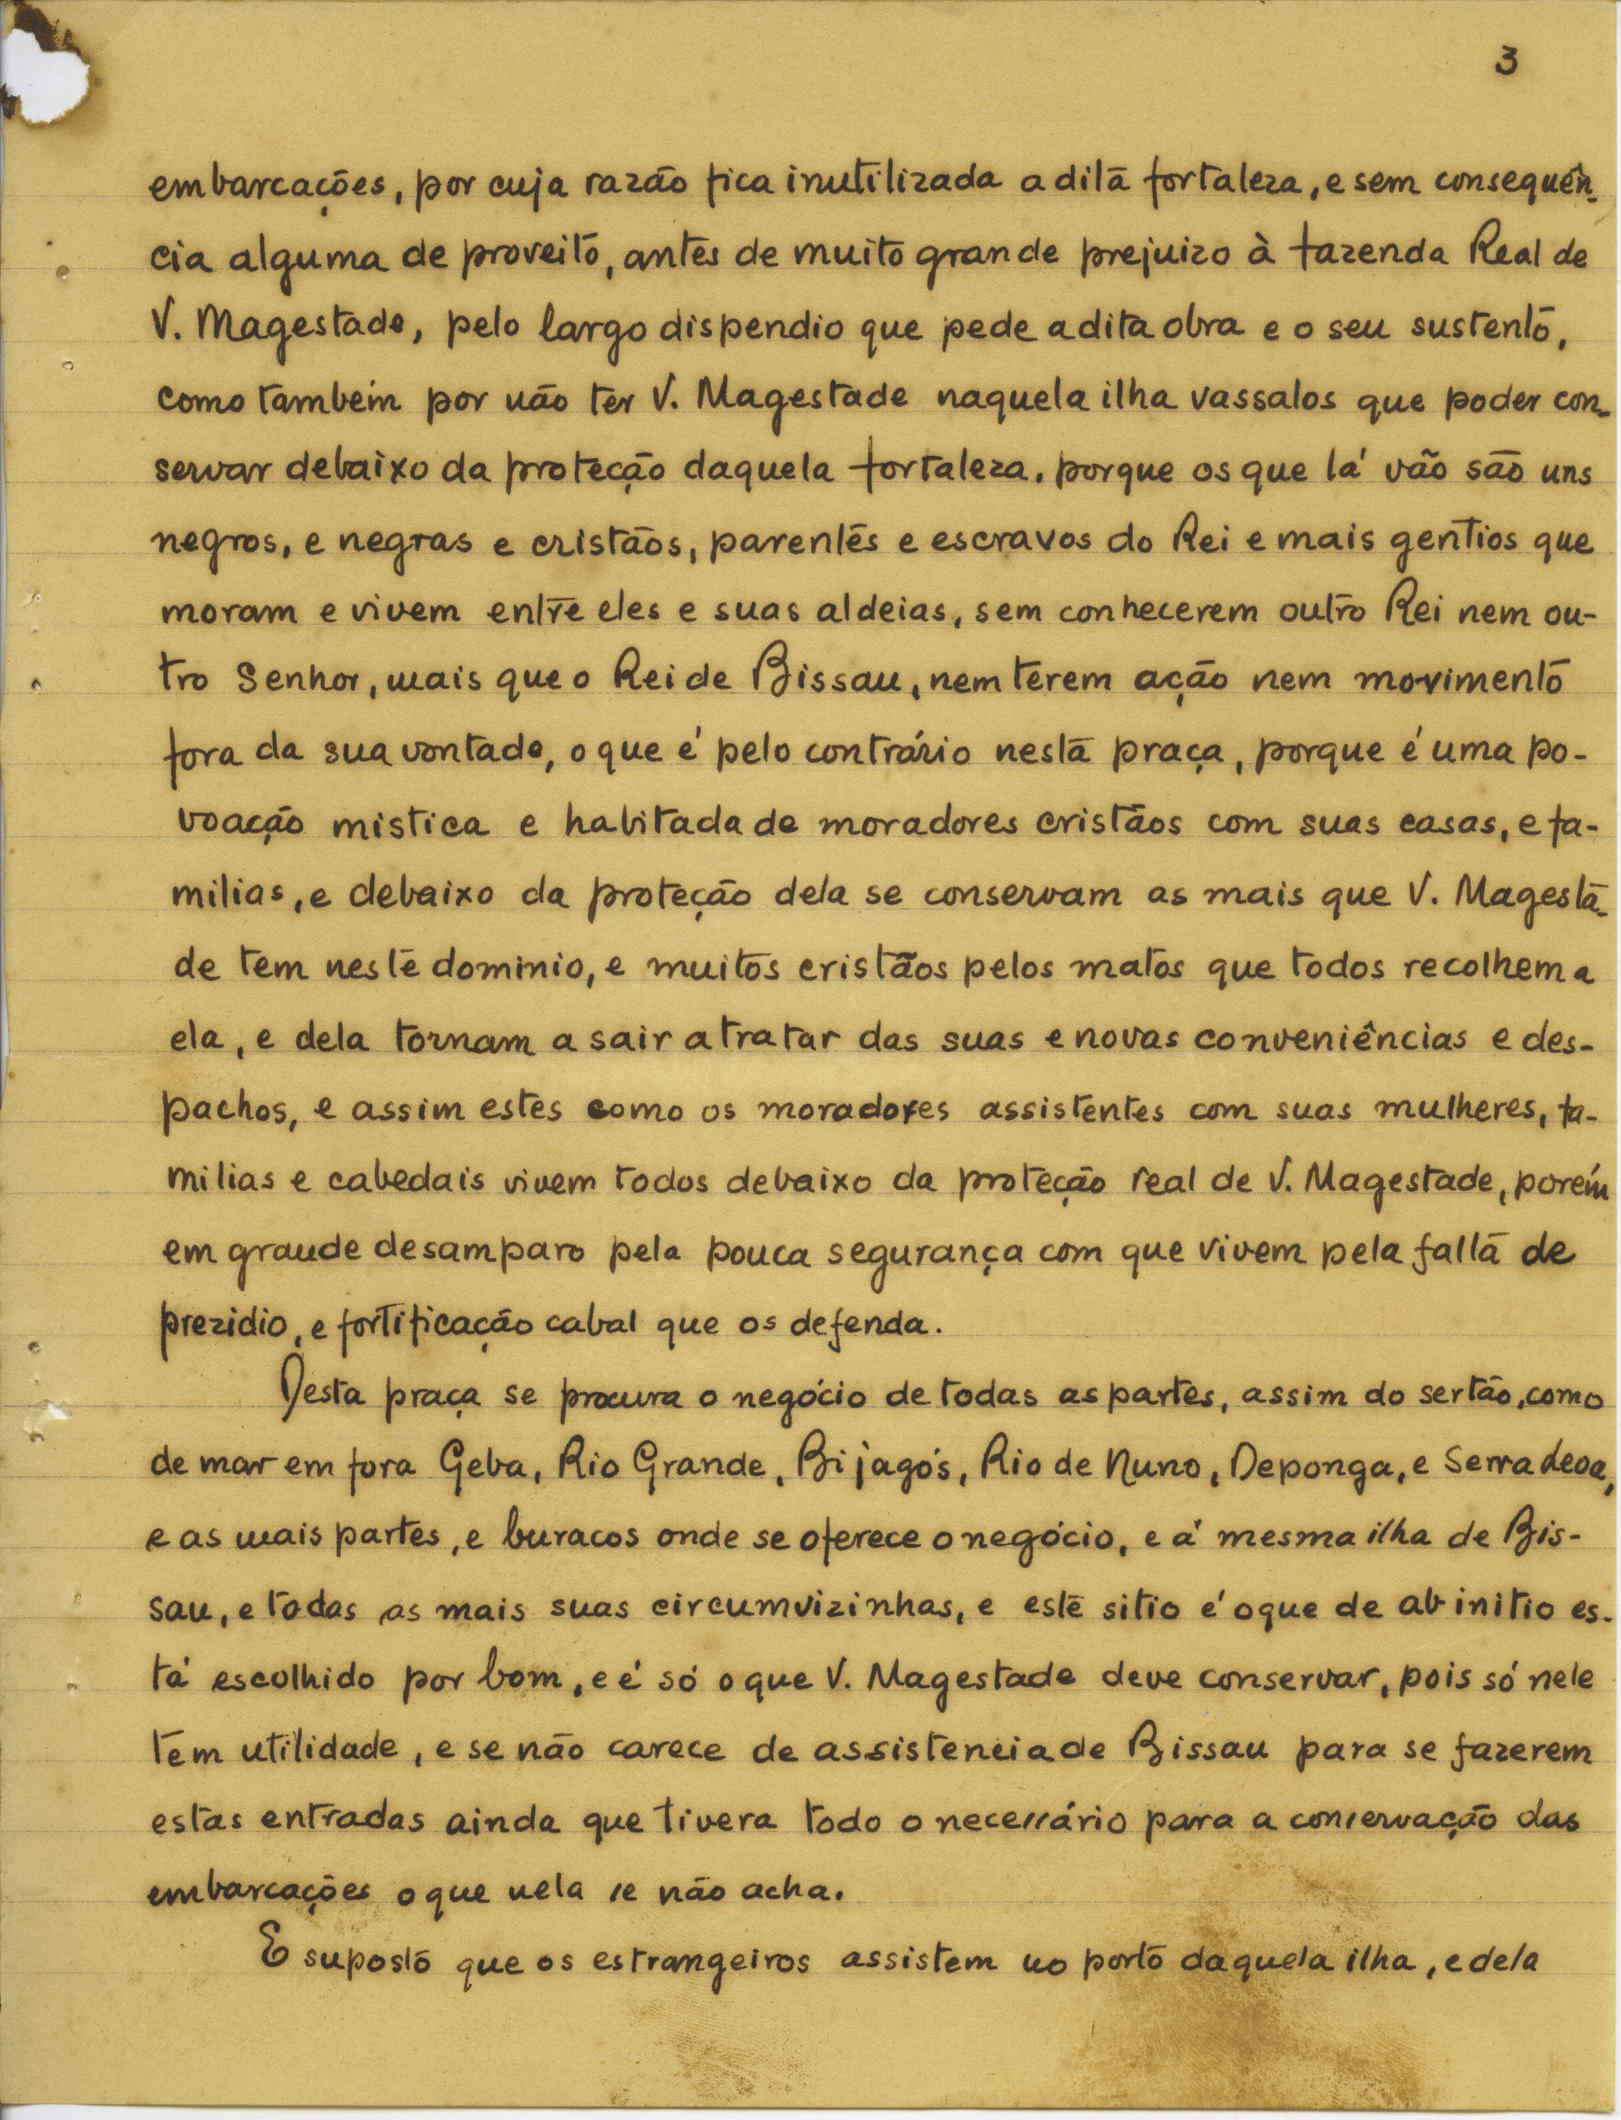 3
embarcações, por cuja razão fica inutilizada a dita fortaleza, e sem consequên-
cia alguma de proveito, antes de muito grande prejuizo à fazenda Real de
V. Magestade, pelo largo dispendio que pede a dita obra e o seu sustento,
como tambem por não ter V. Magestade naquela ilha vassalos que poder con-
servar debaixo da proteção daquela fortaleza. porque os que lá vão são uns
negros, e negras e cristãos, parentes e escravos do Rei e mais gentios que
moram e vivem entre eles e suas aldeias, sem conhecerem outro Rei nem ou-
tro Senhor, mais que o Rei de Bissau, nem terem ação nem movimento
fora da sua vontade, o que é pelo contrário nesta praça, porque é uma po-
voação mistica e habitada de moradores cristãos com suas casas, e fa-
milias, e debaixo da proteção dela se conservam as mais que V. Magesta-
de tem neste dominio, e muitos cristãos pelos matos que todos recolhem a
ela, e dela tornam a sair a tratar das suas e novas conveniências e des-
pachos, e assim estes como os moradores assistentes com suas mulheres, fa-
milias e cabedais vivem todos debaixo da proteção real de V. Magestade, porém
em grande desamparo pela pouca segurança com que vivem pela falta de
prezidio, e fortificação cabal que os defenda.
Desta praça se procura o negócio de todas as partes, assim do sertão, como
de mar em fora Geba, Rio Grande, Bijagós, Rio de Nuno, Deponga, e Serra deoa,
e as mais partes, e buracos onde se oferece o negócio, e á mesma ilha de Bis-
sau, e todas as mais suas circumvizinhas, e este sitio é o que de ab initio es-
tá escolhido por bom, e é só o que V. Magestade deve conservar, pois só nele
tem utilidade, e se não carece de assistencia de Bissau para se fazerem
estas entradas ainda que tivera todo o necessário para a conservação das
embarcações o que nela se não acha.
E suposto que os estrangeiros assistem no porto daquela ilha, e dela